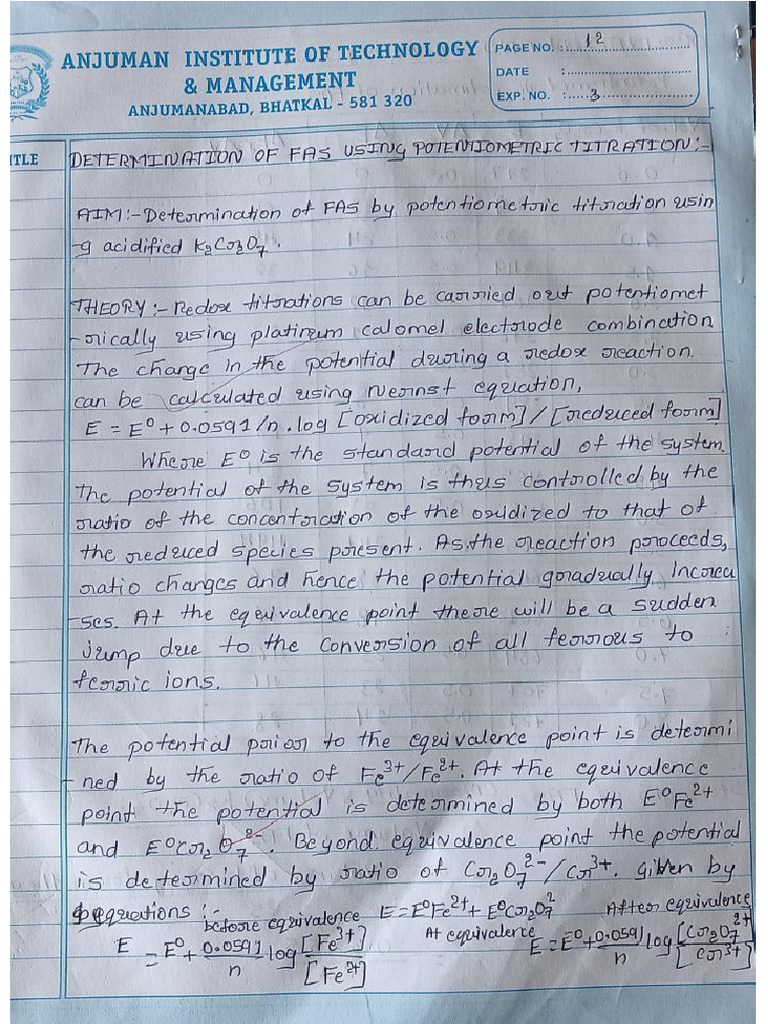 ANJUMAN INSTITUTE OF TECHNOLOGY
& MANAGEMENT
ANJUMANABAD, BHATKAL - 581 320
PAGE NO. : 12
DATE :
EXP. NO. : 3
ITLE
DETERMINATION OF FAS USING POTENTIOMETRIC TITRATION:-
AIM:- Determination of FAS by potentiometric titration usin
-g acidified K₂Cr₂O₇.
THEORY:- Redox titrations can be carried out potentiomet
-rically using platinum calomel electrode combination
The change in the potential during a redox reaction.
can be calculated using Nernst equation,
E = E⁰ + 0.0591/n . log [oxidized form] / [reduced form]
Where E⁰ is the standard potential of the system.
The potential of the system is thus controlled by the
ratio of the concentration of the oxidized to that of
the reduced species present. As the reaction proceeds,
ratio changes and hence the potential gradually increa
-ses. At the equivalence point there will be a sudden
jump due to the conversion of all ferrous to
ferric ions.
The potential prior to the equivalence point is determi
-ned by the ratio of Fe³⁺/Fe²⁺. At the equivalence
point the potential is determined by both E⁰Fe²⁺
and E⁰Cr₂O₇²⁻. Beyond equivalence point the potential
is determined by ratio of Cr₂O₇²⁻/Cr³⁺. given by
equations :-
before equivalence
E = E⁰ + 0.0591/n log [Fe³⁺]/[Fe²⁺]
E = E⁰Fe²⁺ + E⁰Cr₂O₇²
At equivalence
After equivalence
E = E⁰ + 0.0591/n log [Cr₂O₇²⁺]/[Cr³⁺]